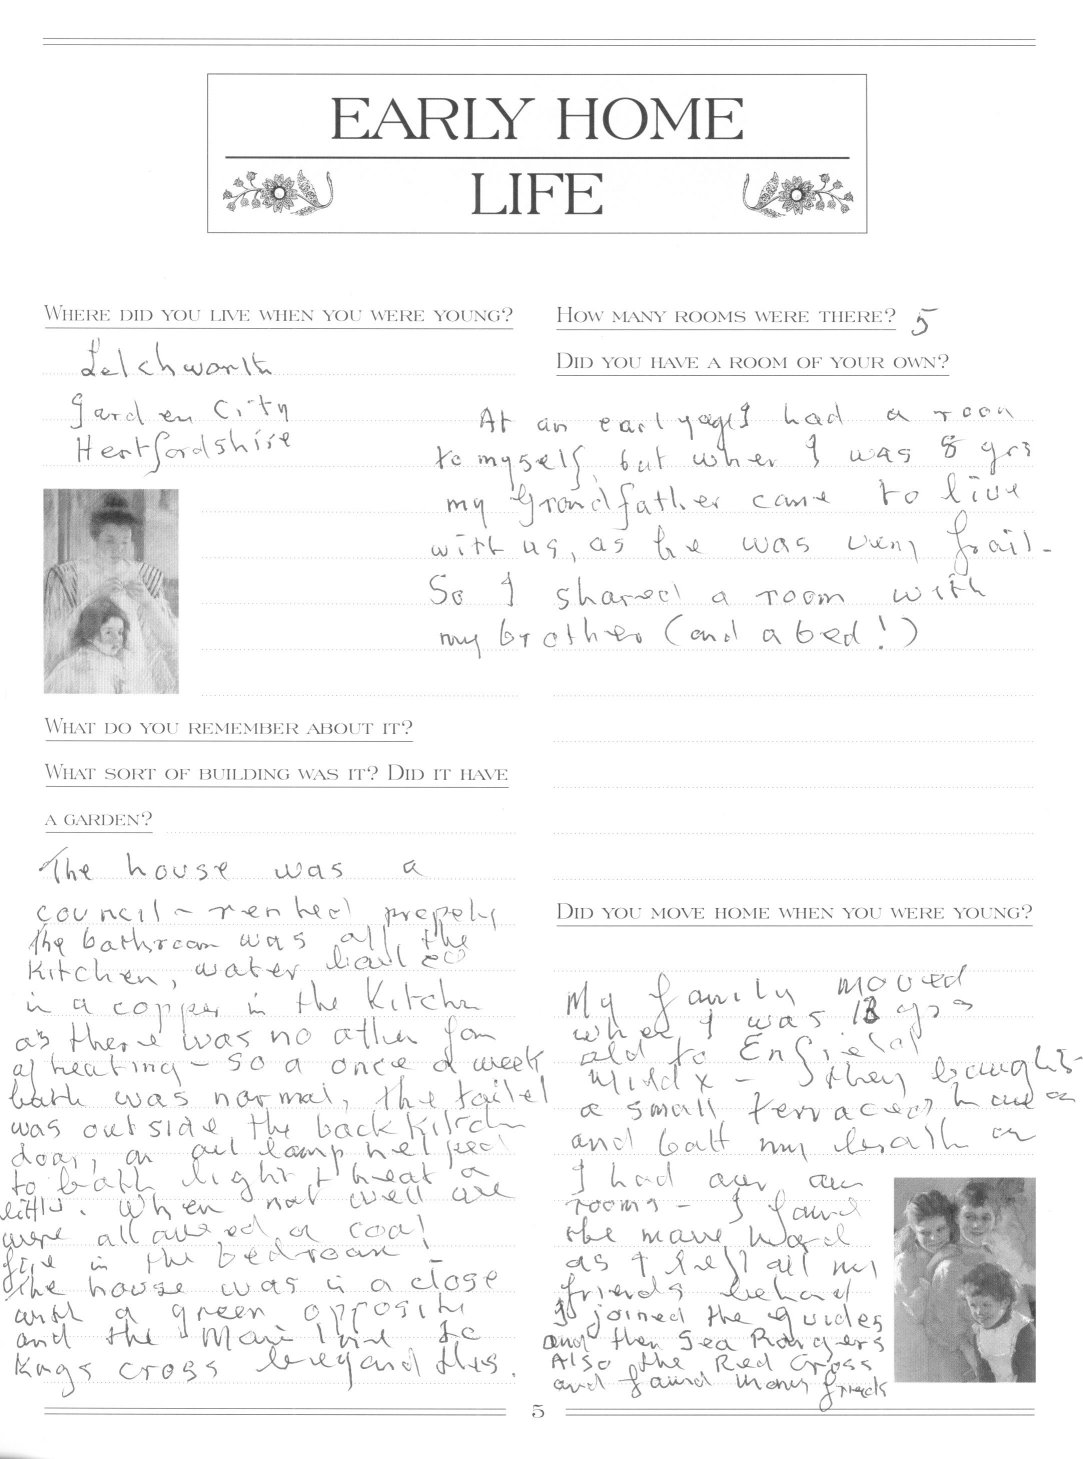 EARLY HOME
LIFE
WHERE DID YOU LIVE WHEN YOU WERE YOUNG?
Letchworth
Garden City
Hertfordshire
WHAT DO YOU REMEMBER ABOUT IT?
WHAT SORT OF BUILDING WAS IT? DID IT HAVE
A GARDEN?
The house was a
council - rented propety
the bathroom was all the
kitchen, water boiled
in a copper in the kitchn
as there was no other form
of heating - so a once a week
bath was normal, the toilet
was outside the back kitchn
door, an oil lamp helped
to both light & heat a
little. When not well we
were allowed a coal
fire in the bedroom -
The house was in a close
with a green opposite
and the Main line to
Kings Cross beyond this.
HOW MANY ROOMS WERE THERE? 5
DID YOU HAVE A ROOM OF YOUR OWN?
At an early age I had a room
to myself, but when I was 8 yrs
my Grandfather came to live
with us, as he was very frail -
So I shared a room with
my brother (and a bed!)
DID YOU MOVE HOME WHEN YOU WERE YOUNG?
My family moved
when I was 13 yrs
old to Enfield
Middx - they bought
a small terraced house
and both my brother
I had our own
rooms - I found
the move hard
as I left all my
friends behind
So joined the guides
and then Sea Rangers
Also the Red Cross
and found many friends
5